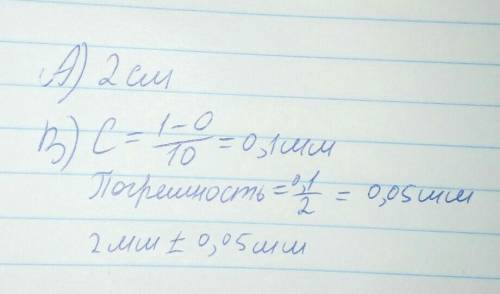 А) 2 см
В) C = 1-0/10 = 0,1мм
Погрешность = 0,1/2 = 0,05мм
2мм ± 0,05мм